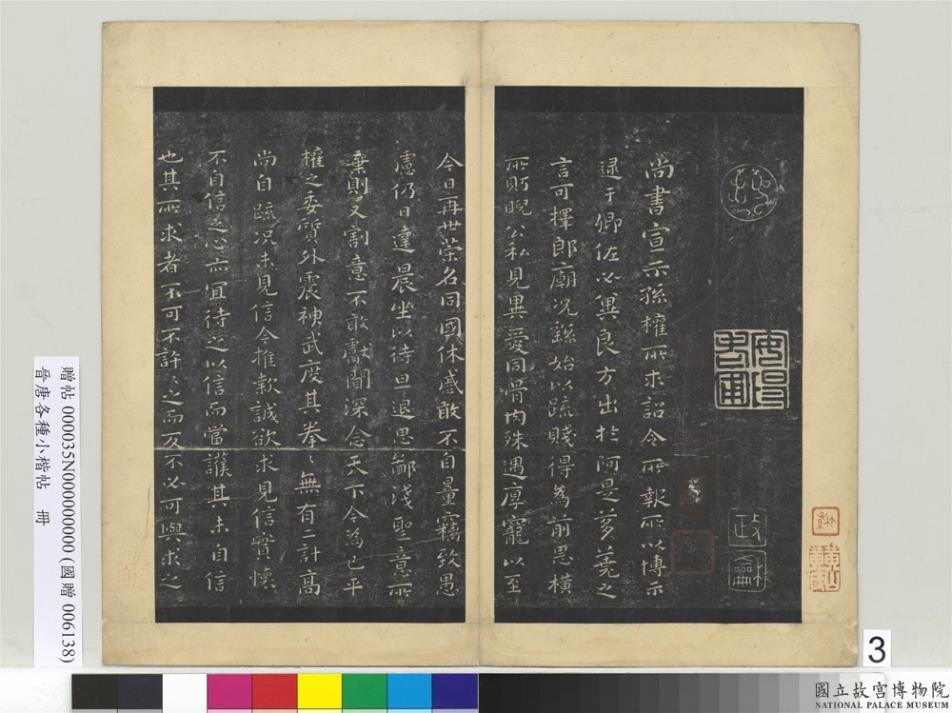 尚書宣示孫權所求詔令所報所以博示
逮于卿佐必冀良方出於阿是芻蕘之
言可擇郎廟況繇始以疏賤得為前恩橫
所盼睨公私見異愛同骨肉殊遇厚寵以至
今日再世榮名同國休慼敢不自量竊致愚
慮仍日達晨坐以待旦退思鄙淺聖意所
棄則又割意不敢獻聞深念天下今為已平
權之委質外震神武度其拳〻無有二計高
尚自疏況未見信今推款誠欲求見信實懷
不自信之心亦宜待之以信而當護其未自信
也其所求者不可不許〻之而反不必可與求之
贈帖 000035N000000000 (國贈 006138)
晉唐各種小楷帖 冊
3
國立故宮博物院
NATIONAL PALACE MUSEUM